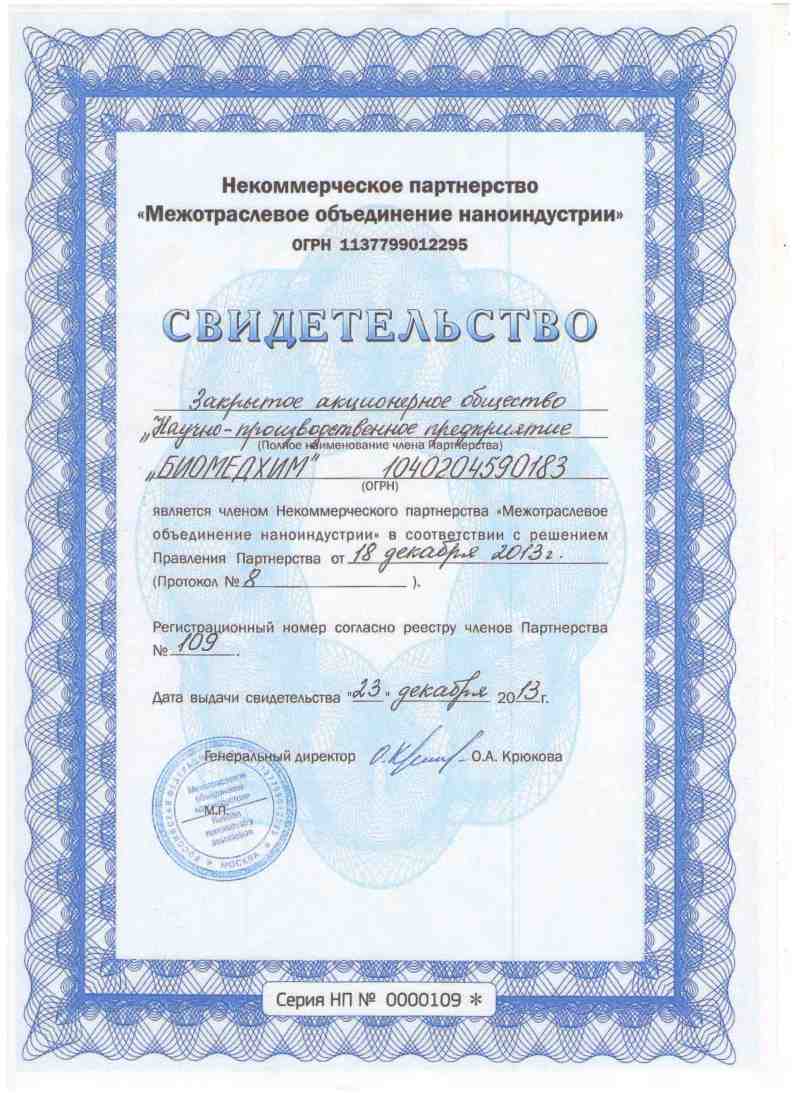 Некоммерческое партнерство
«Межотраслевое объединение наноиндустрии»
ОГРН 1137799012295
СВИДЕТЕЛЬСТВО
Закрытое акционерное общество
„Научно-производственное предприятие
(Полное наименование члена Партнерства)
„БИОМЕДХИМ" 1040204590183
(ОГРН)
является членом Некоммерческого партнерства «Межотраслевое
объединение наноиндустрии» в соответствии с решением
Правления Партнерства от 18 декабря 2013 г.
(Протокол № 8 ).
Регистрационный номер согласно реестру членов Партнерства
№ 109.
Дата выдачи свидетельства "23" декабря 2013 г.
Генеральный директор О.А. Крюкова
Межотраслевое
объединение
наноиндустрии
М.П.
Russian
nanoindustry
association
МОСКВА
Серия НП № 0000109 *